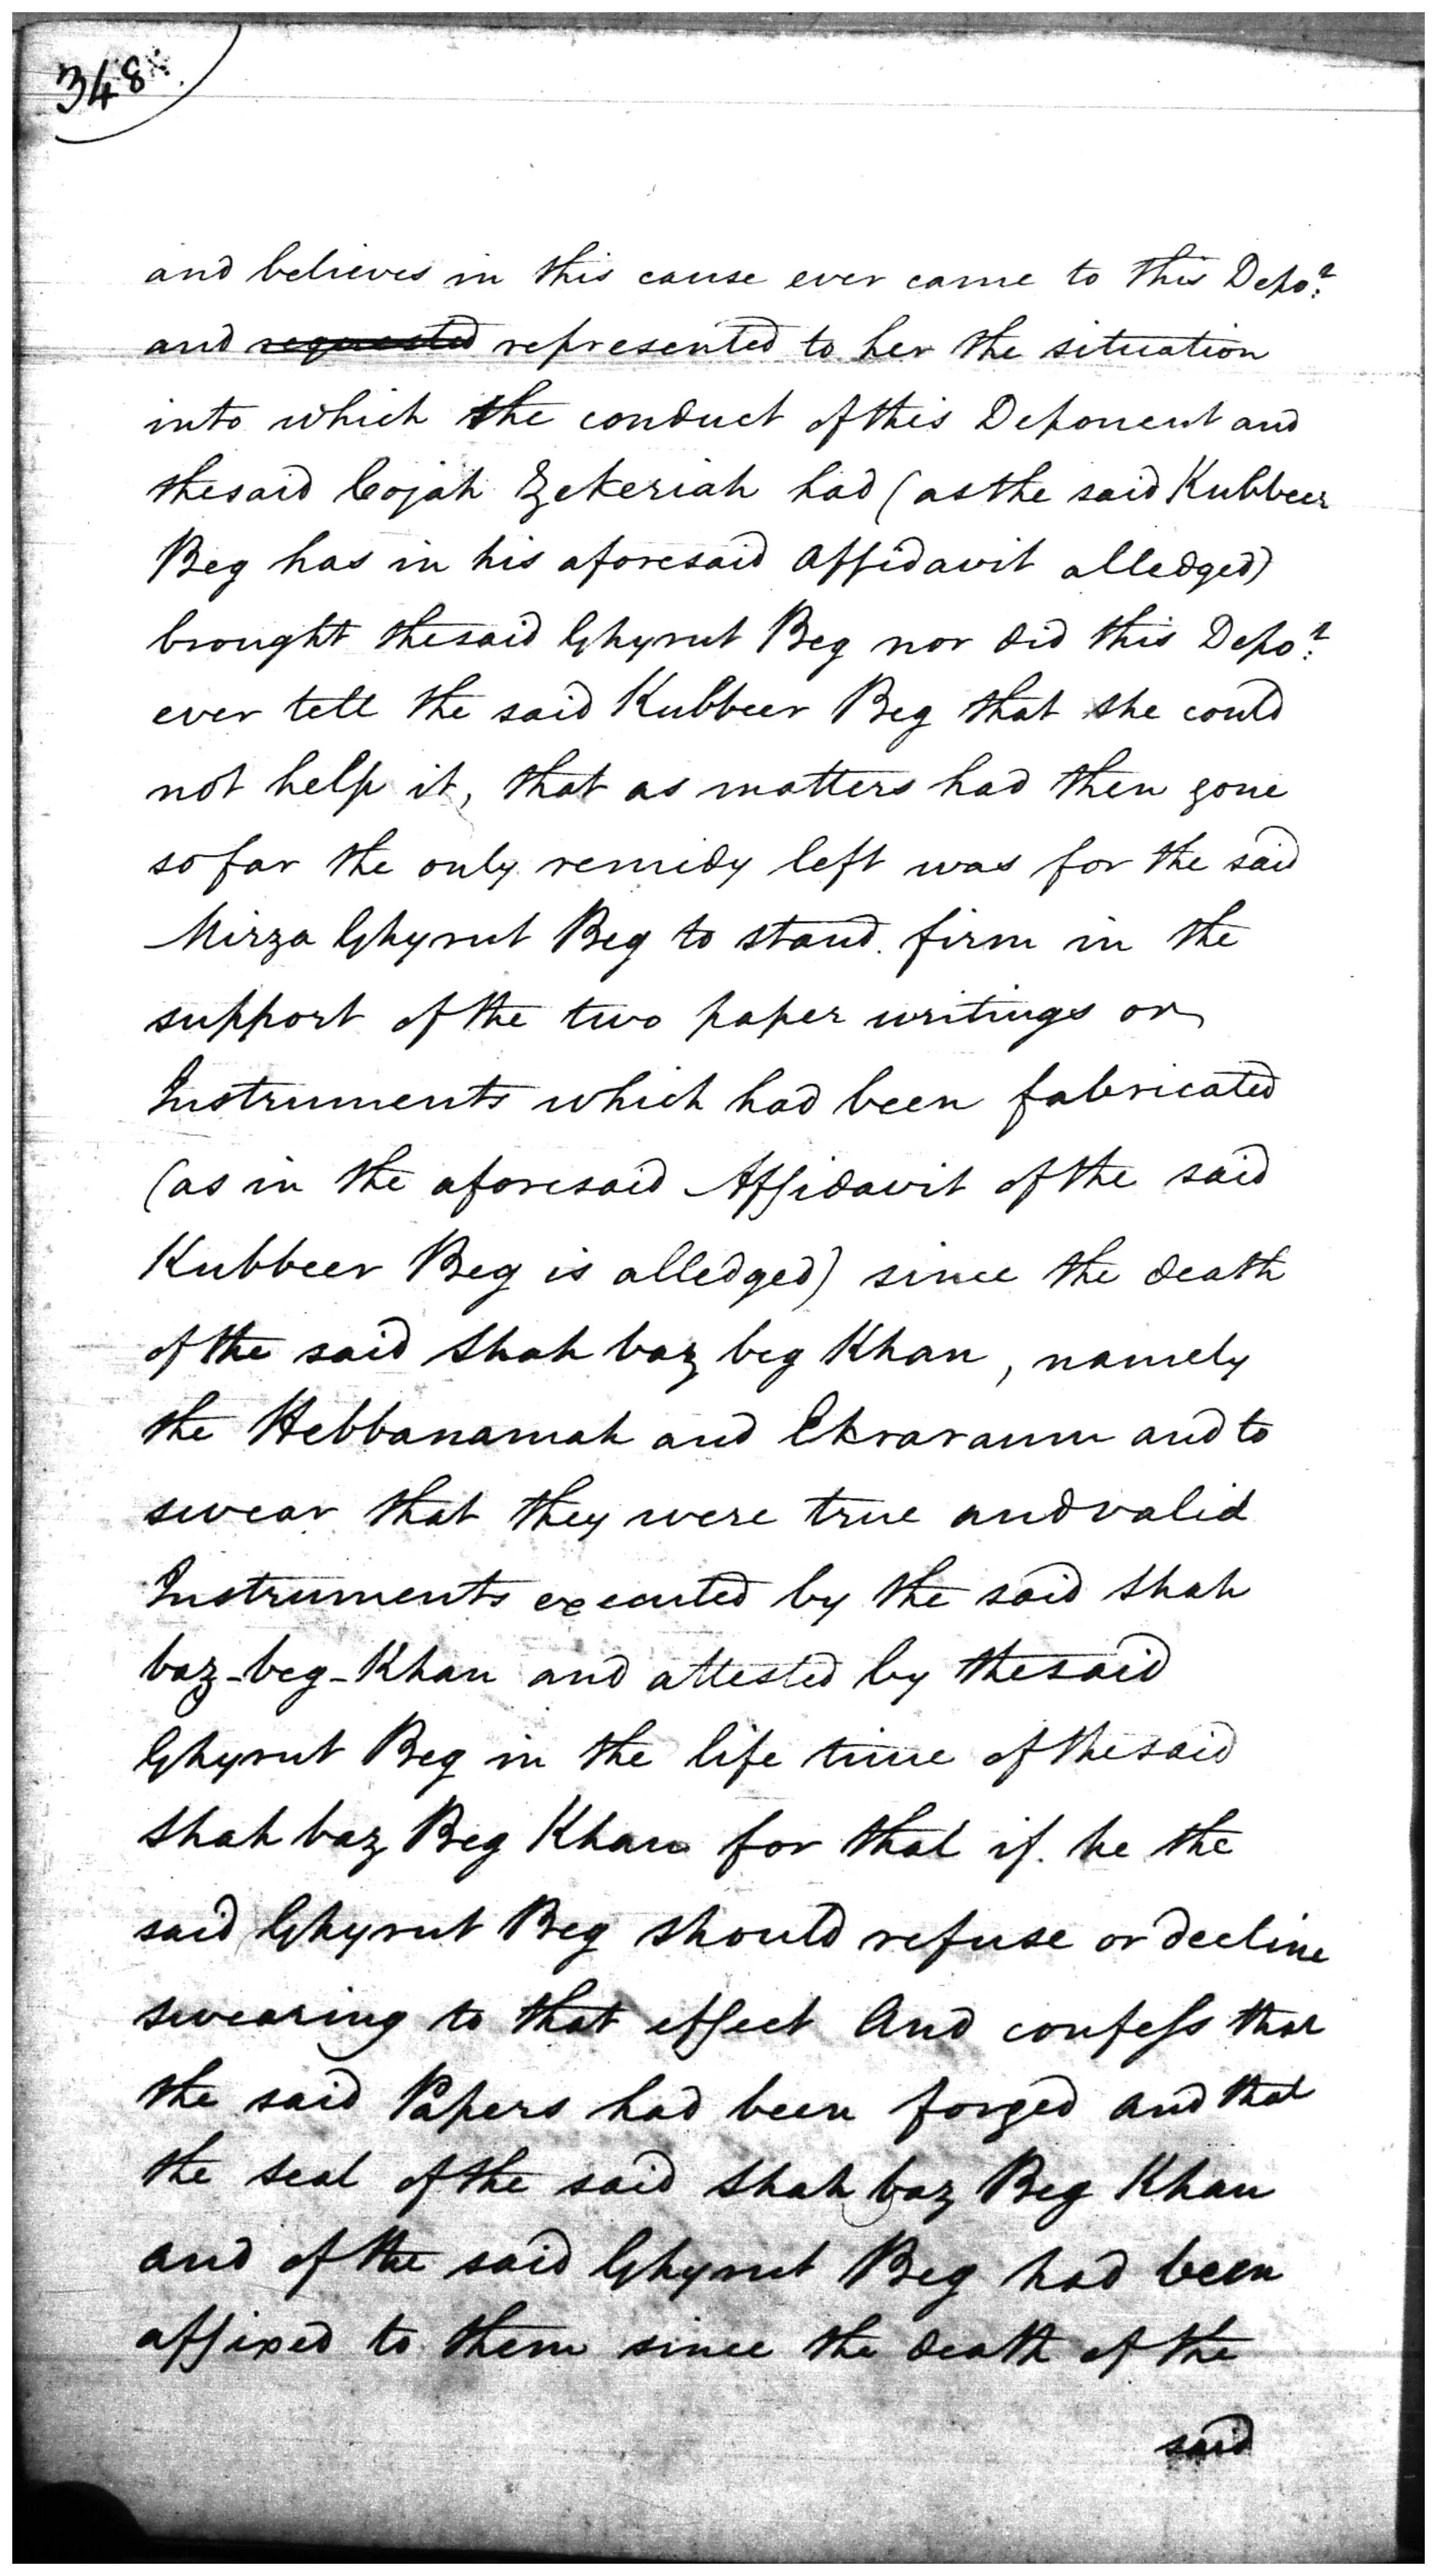 348
and believes in this cause ever came to this Depo^t:
and ~~requested~~ represented to her the situation
into which the conduct of this Deponent and
the said Cojah Zekeriah had (as the said Kubbeer
Beg has in his aforesaid affidavit alledged)
brought the said Ghyrut Beg nor did this Depo^t:
ever tell the said Kubbeer Beg that she could
not help it, that as matters had then gone
so far the only remidy left was for the said
Mirza Ghyrut Beg to stand firm in the
support of the two paper writings or
Instruments which had been fabricated
(as in the aforesaid Affidavit of the said
Kubbeer Beg is alledged) since the death
of the said Shah baz beg Khan, namely
the Hebbanamah and Ekraranm and to
swear that they were true and valid
Instruments executed by the said Shah
baz-beg-Khan and attested by the said
Ghyrut Beg in the life time of the said
Shah baz Beg Khan for that if he the
said Ghyrut Beg should refuse or decline
swearing to that effect And confess that
the said Papers had been forged and that
the seal of the said Shah baz Beg Khan
and of the said Ghyrut Beg had been
affixed to them since the death of the
said